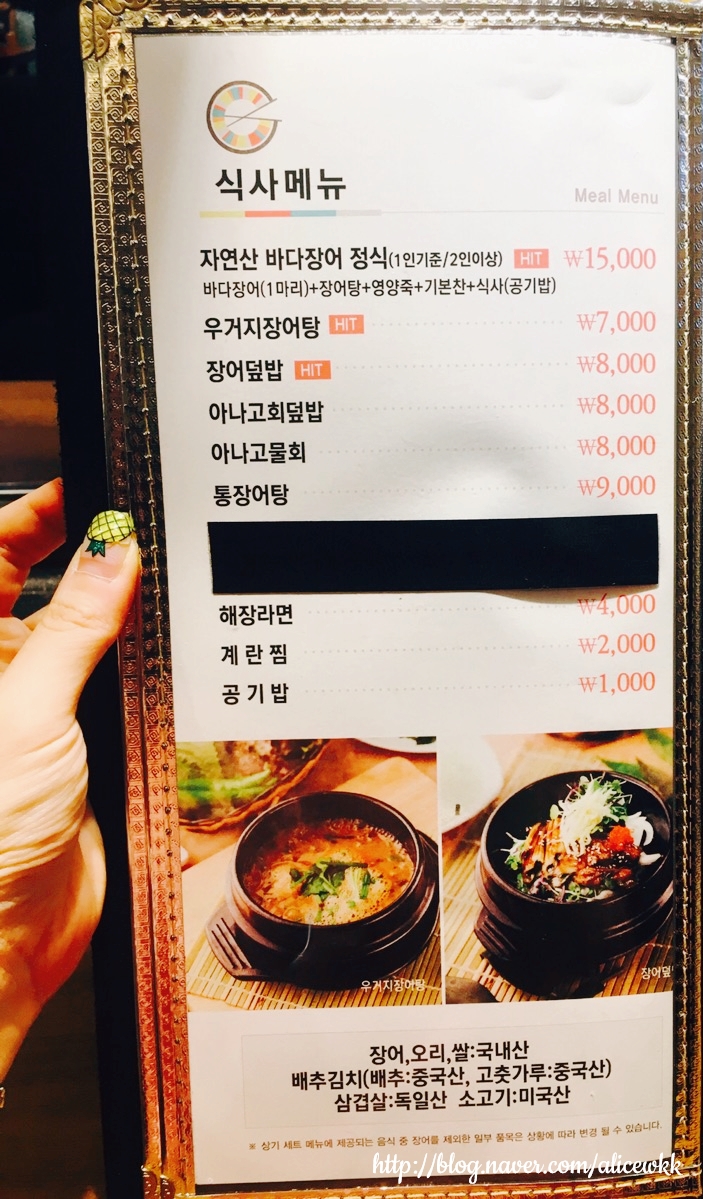 식사메뉴
Meal Menu
자연산 바다장어 정식(1인기준/2인이상) HIT ₩15,000
바다장어(1마리)+장어탕+영양죽+기본찬+식사(공기밥)
우거지장어탕 HIT ₩7,000
장어덮밥 HIT ₩8,000
아나고회덮밥 ₩8,000
아나고물회 ₩8,000
통장어탕 ₩9,000
해장라면 ₩4,000
계란찜 ₩2,000
공기밥 ₩1,000
우거지장어탕
장어덮
장어,오리,쌀:국내산
배추김치(배추:중국산, 고춧가루:중국산)
삼겹살:독일산 소고기:미국산
※ 상기 세트 메뉴에 제공되는 음식 중 장어를 제외한 일부 품목은 상황에 따라 변경 될 수 있습니다.
http://blog.naver.com/alicewkk